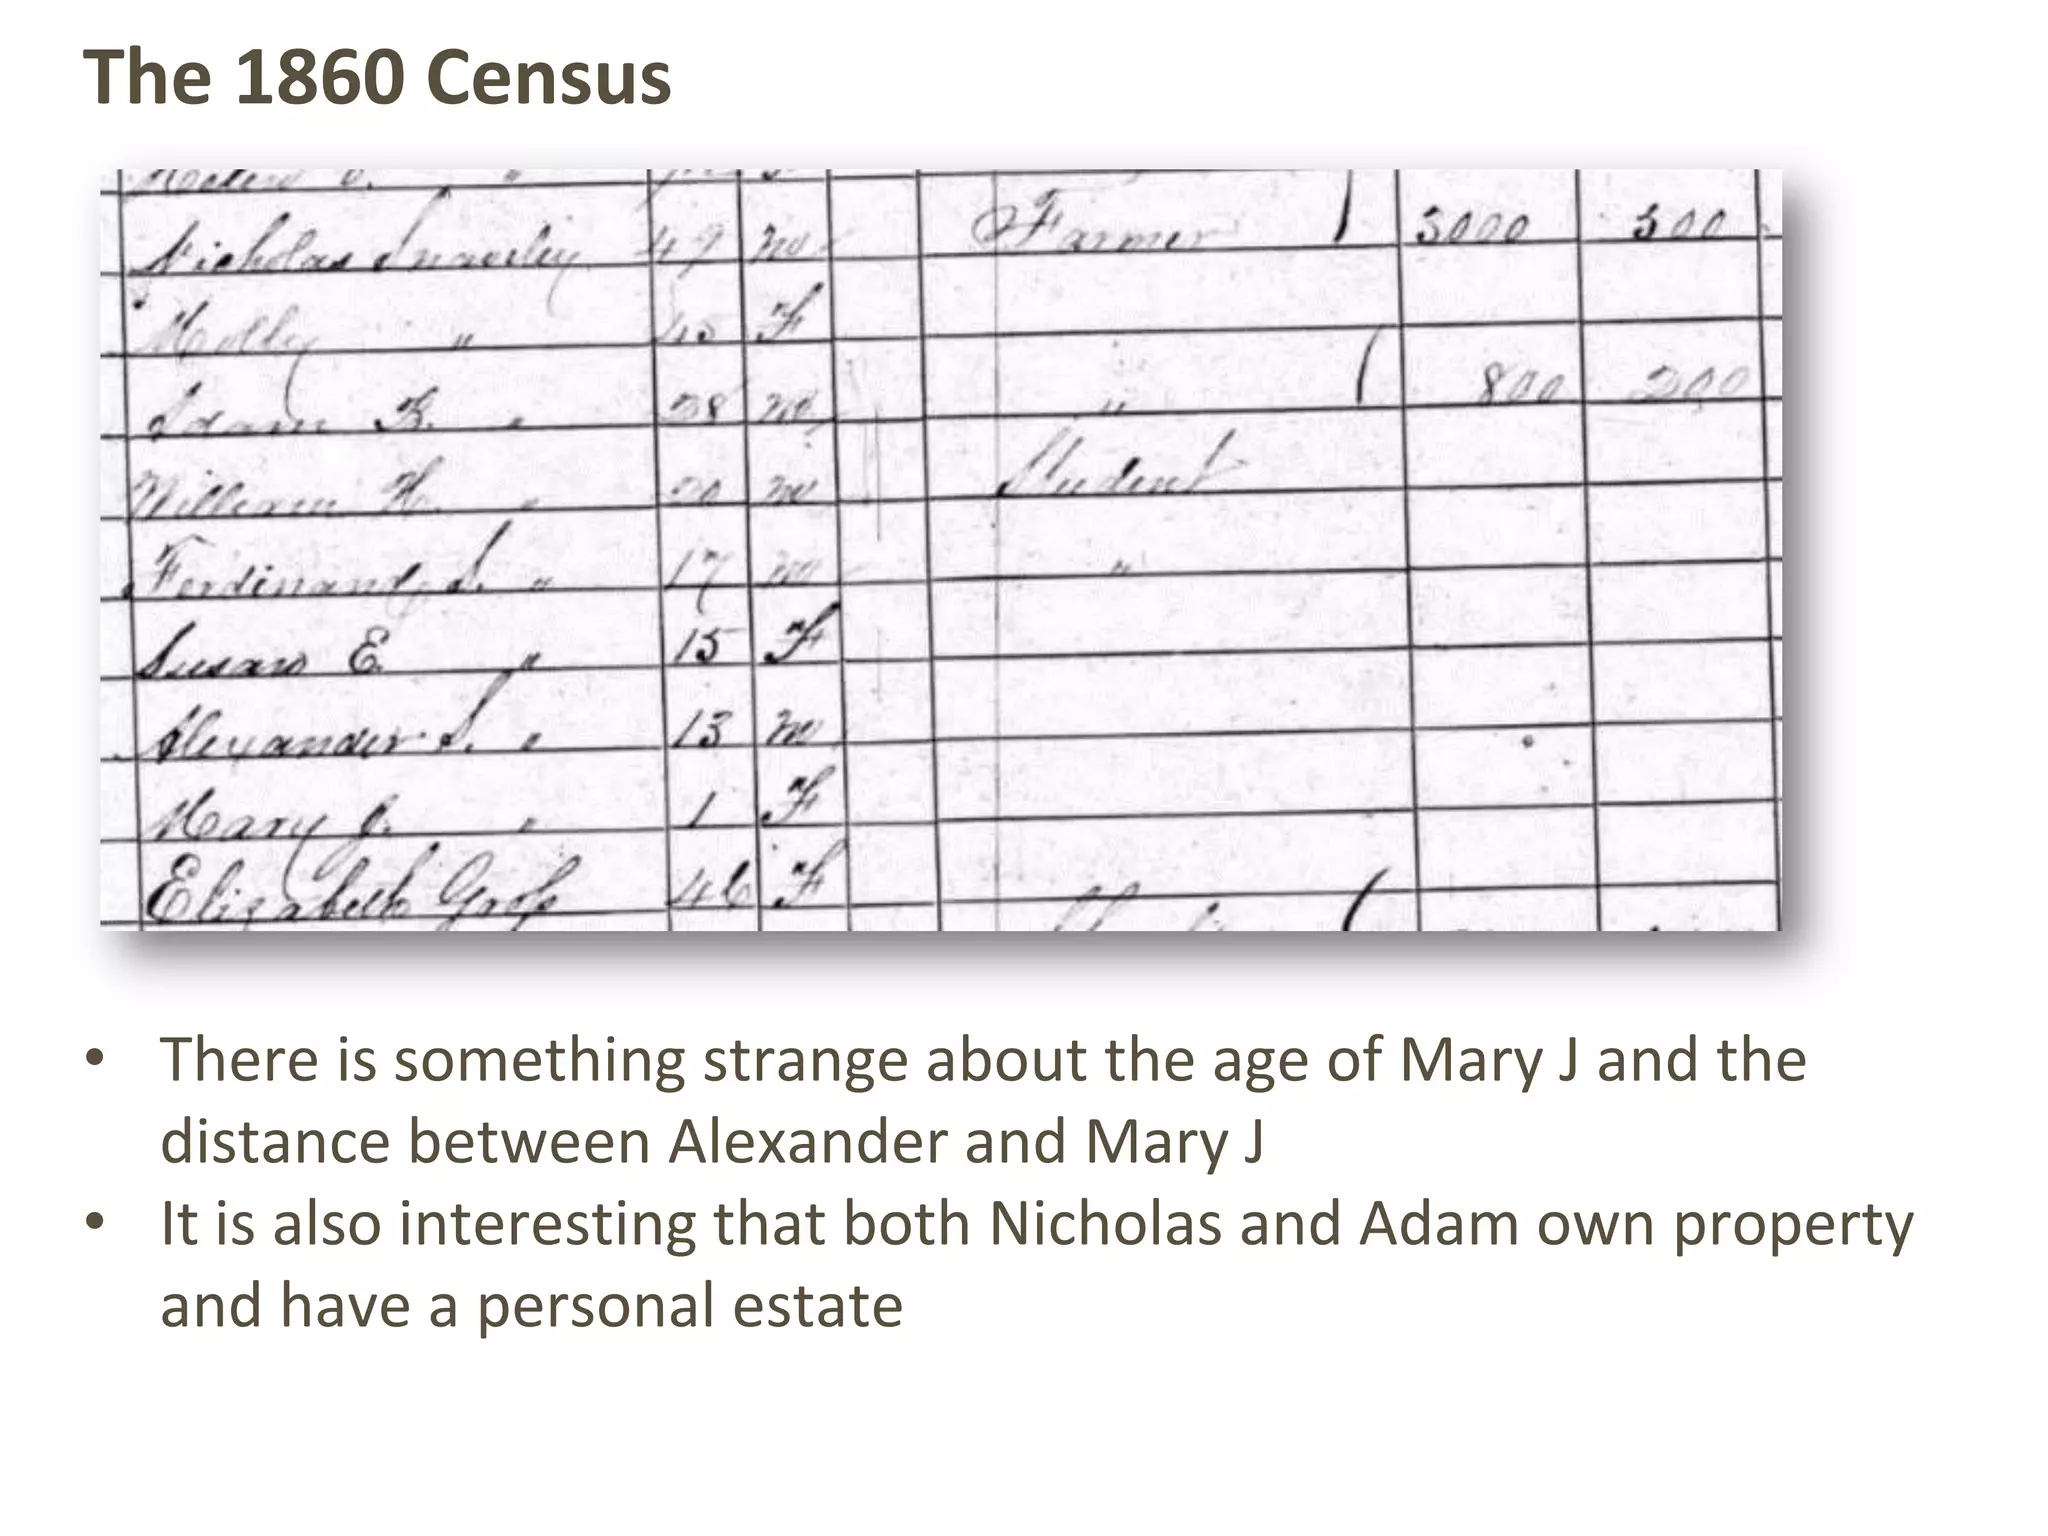 The 1860 Census
Nicholas Snavely 49 m Farmer 3000 500
Molly " 45 F
Adam B. " 28 m " 800 200
William H. " 20 m Student
Ferdinand S. " 17 m "
Susan E. " 15 F
Alexander S. " 13 m
Mary J. " 1 F
Elizabeth Gross 46 F
• There is something strange about the age of Mary J and the
distance between Alexander and Mary J
• It is also interesting that both Nicholas and Adam own property
and have a personal estate